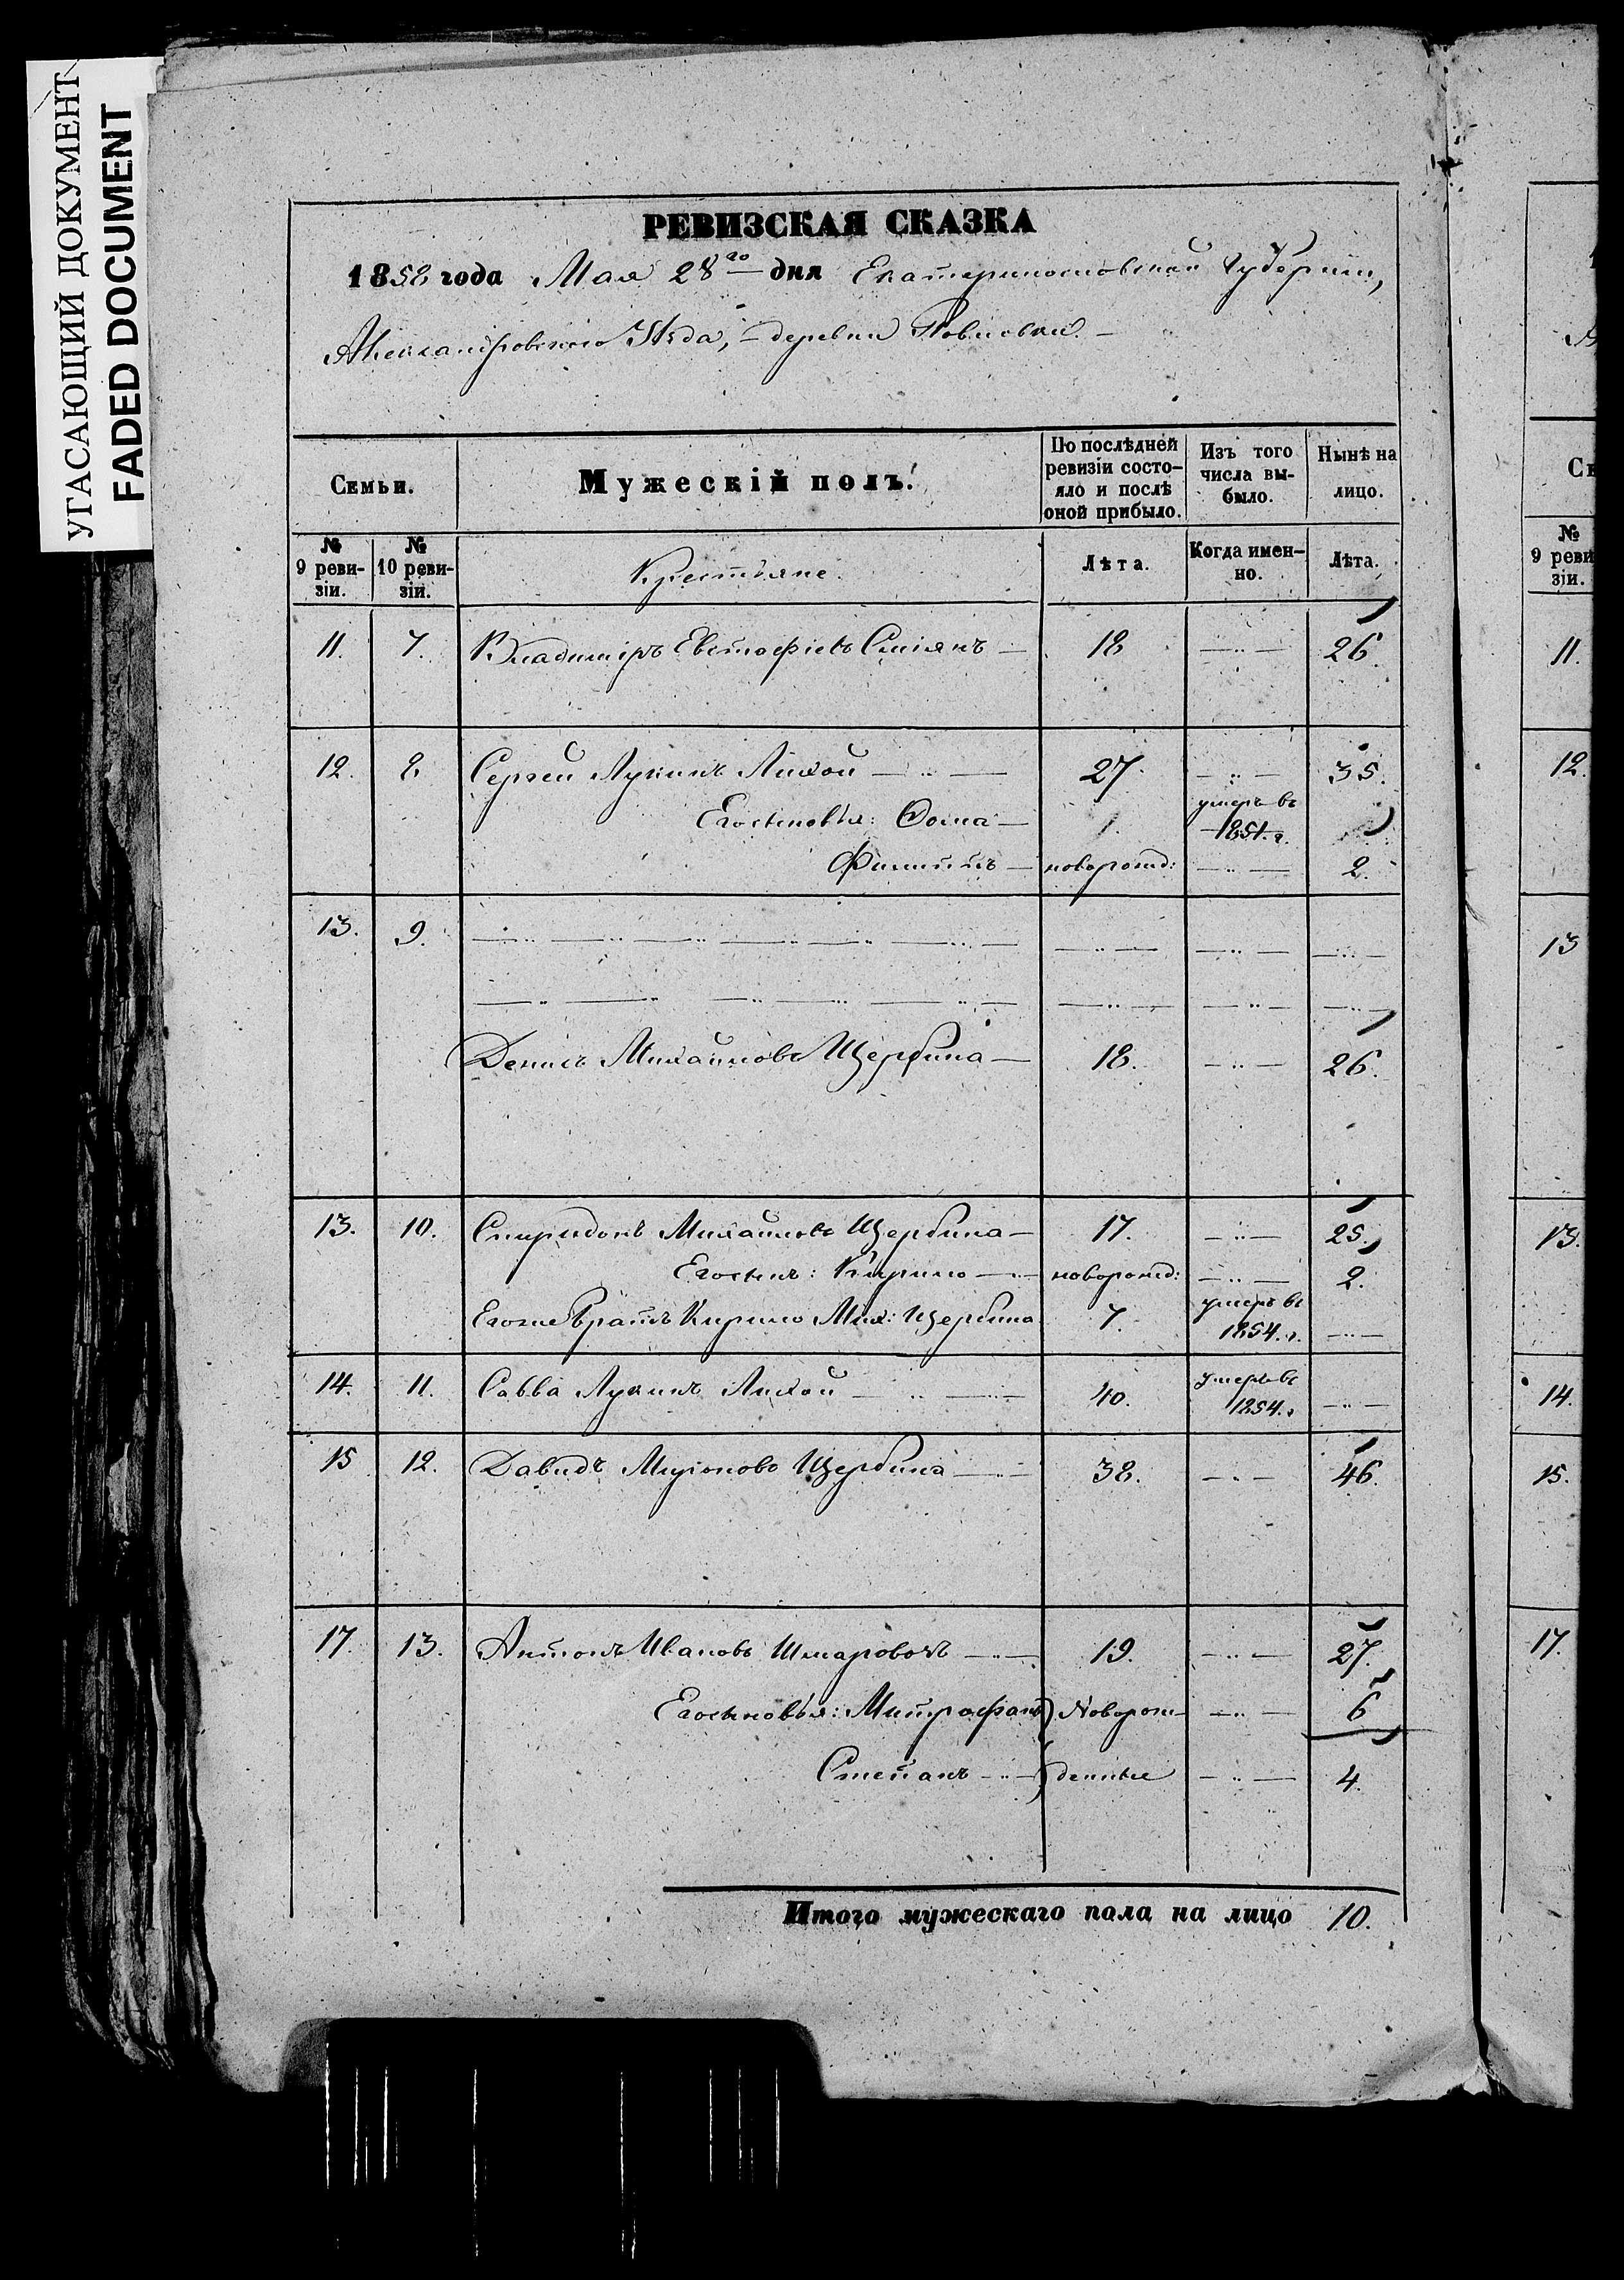 УГАСАЮЩИЙ ДОКУМЕНТ
FADED DOCUMENT
РЕВИЗСКАЯ СКАЗКА
1858 года Мая 28го дня Екатеринославской Губернии,
Александровского Уѣзда, – деревни
Семьи.
Мужескій полъ.
По послѣдней ревизіи состо-
яло и послѣ
оной прибыло.
Изъ того
числа вы-
было.
Нынѣ на
лицо.
№
9 реви-
зіи.
№
10 реви-
зіи.
Крестьяне.
Лѣта.
Когда имен-
но.
Лѣта.
11. 7. Владиміръ Евстафіевъ 18 26.
12. 8. Сергей Лукинъ Лихой 27. 35.
Его сыновья: Фома 1. умеръ въ 1851. г.
Филиппъ новорожд: 2.
13. 9.
Денисъ Михайловъ Щербина 18. 26.
13. 10. Спиридонъ Михайловъ Щербина 17. 25.
Его сынъ: Кирило новорожд: 2.
Его же братъ Кирило Мих: Щербина 7. умеръ въ 1854. г.
14. 11. Савва Лукинъ Лихой 40. умеръ въ 1854. г.
15 12. Давидъ Мироновъ Щербина 38. 46.
17. 13. Антонъ Ивановъ 19. 27.
Его сыновья: Митрофанъ) Новорож- 6
Степанъ ) денные 4.
Итого мужескаго пола на лицо 10.
№
9 реви
зіи.
11.
12.
13
13.
14.
15.
17.